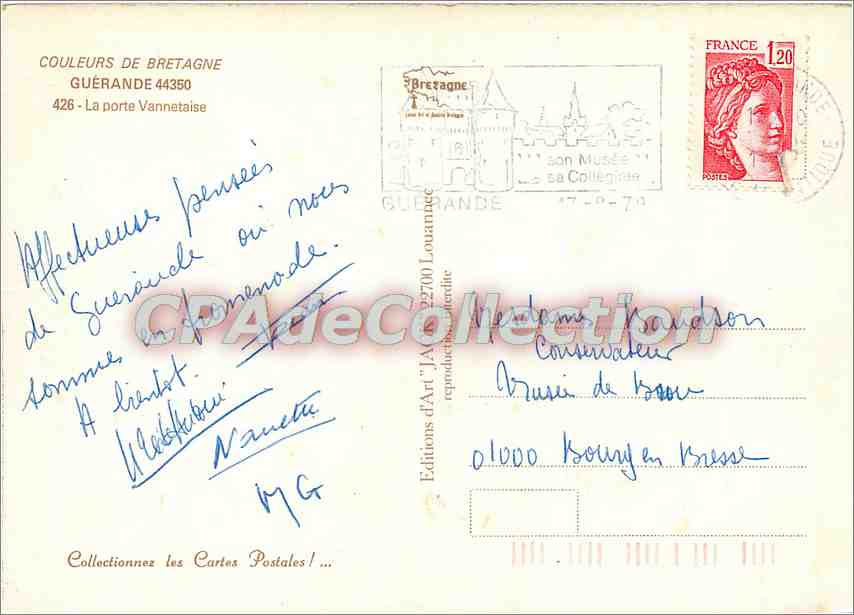 COULEURS DE BRETAGNE
GUÉRANDE 44350
426 - La porte Vannetaise
Bretagne
son Musée
sa Collégiale
GUÉRANDE
FRANCE 1,20
POSTES
Affectueuses pensées
de Guérande où nous
sommes en promenade.
A bientot.
Nanette
MG
Editions d'Art "JA 22700 Louannec
reproduction interdite
CPAdeCollection
Conservateur
Musée de Brou
01000 Bourg en Bresse
Collectionnez les Cartes Postales ! ...